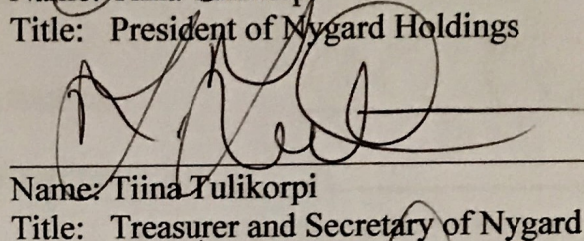 Title: President of Nygard Holdings
Name: Tiina Tulikorpi
Title: Treasurer and Secretary of Nygard